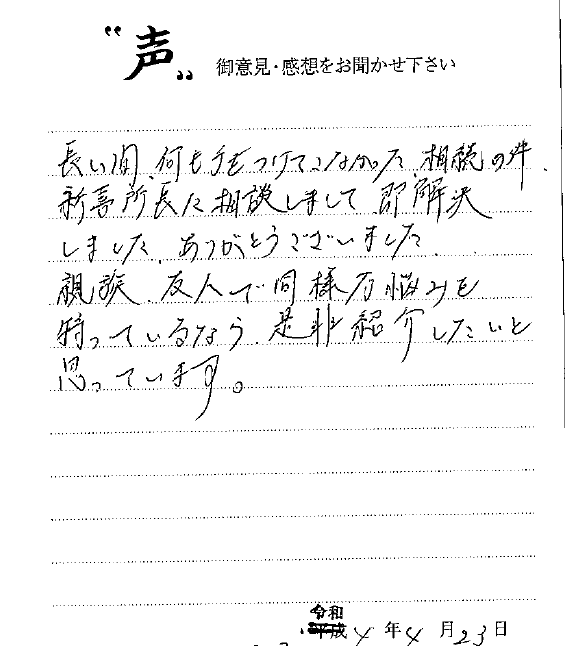 “声„
御意見・感想をお聞かせ下さい
長い間、何も手をつけていなかった、相続の件、
新喜所長に相談しまして、即解決
しました。ありがとうございました。
親族、友人で同様な悩みを
持っているなら、是非紹介したいと
思っています。
令和
平成 4年4月23日